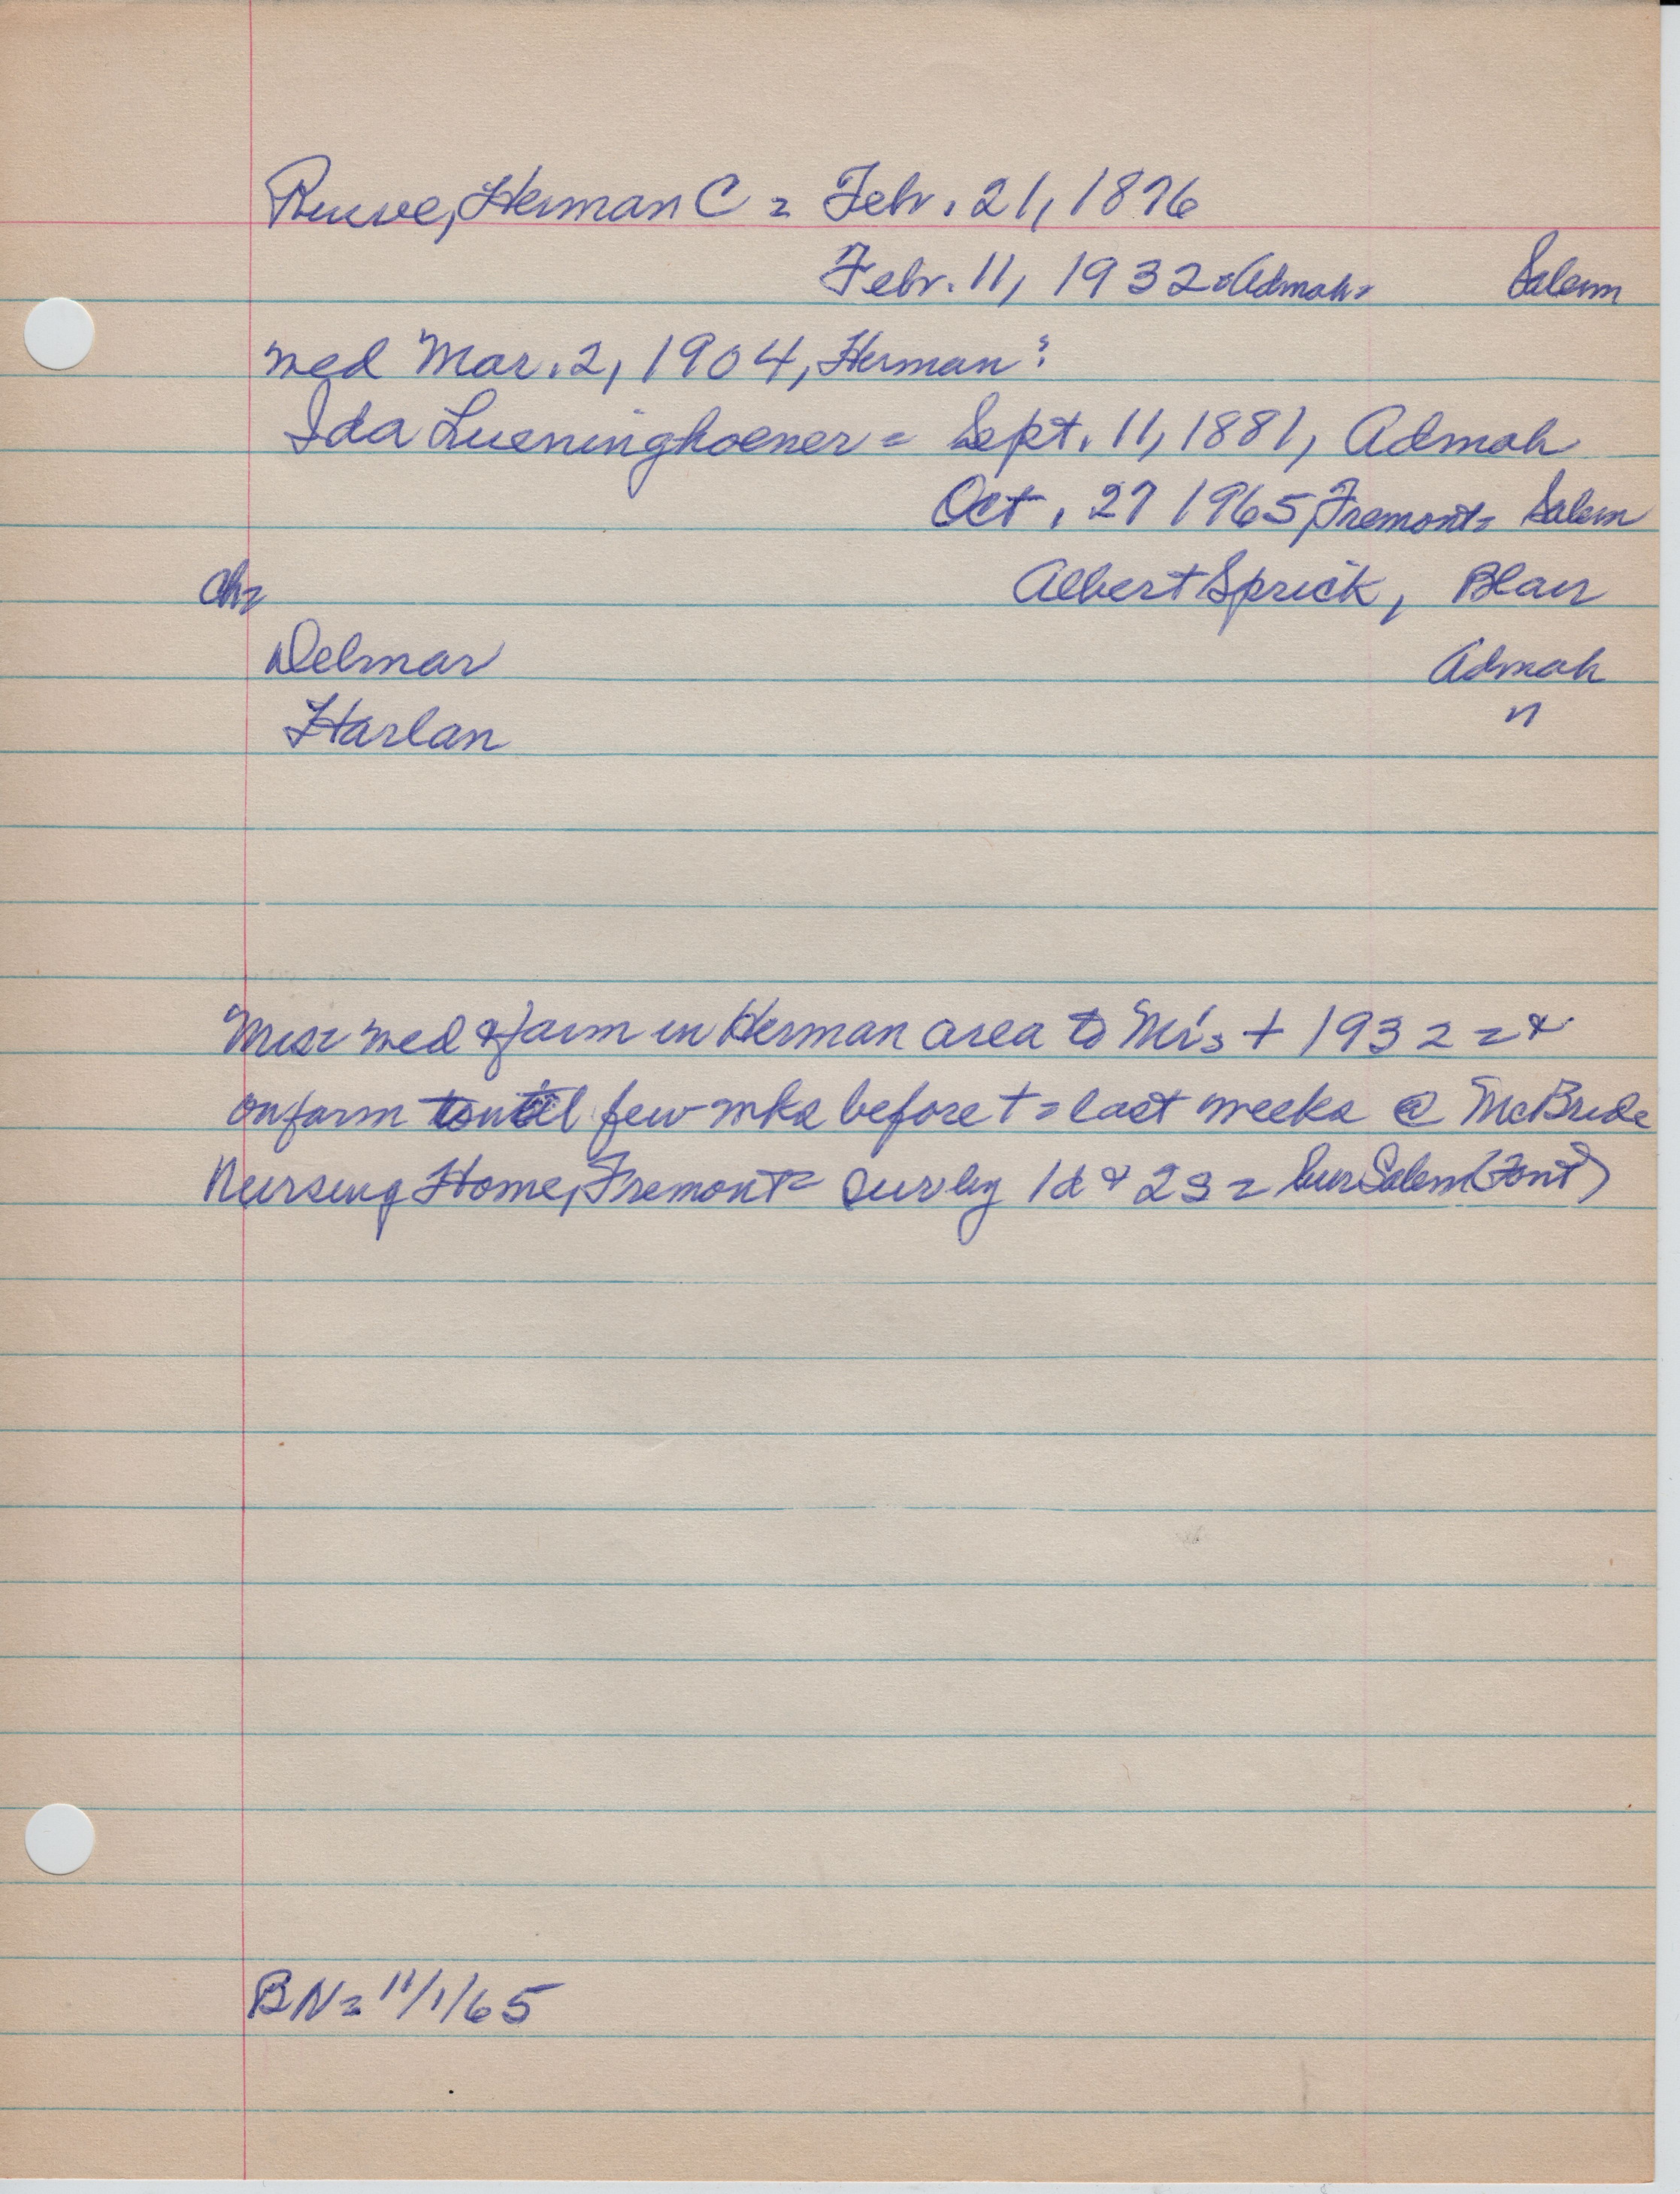 Reuve, Herman C = Febr. 21, 1876
Febr. 11, 1932 = Admah = Salem
wed Mar. 2, 1904, Herman:
Ida Lueninghoener = Sept. 11, 1881, Admah
Oct. 27 1965, Fremont = Salem
ch= Albert Sprick, Blair
Delmar Admah
Harlan "
wed & farm in Herman area to Mr's + 1932 = &
on farm until few wks before + = last weeks @ McBride
Nursing Home, Fremont = surv by 1d & 2s = bur Salem (Font)
BN = 11/1/65